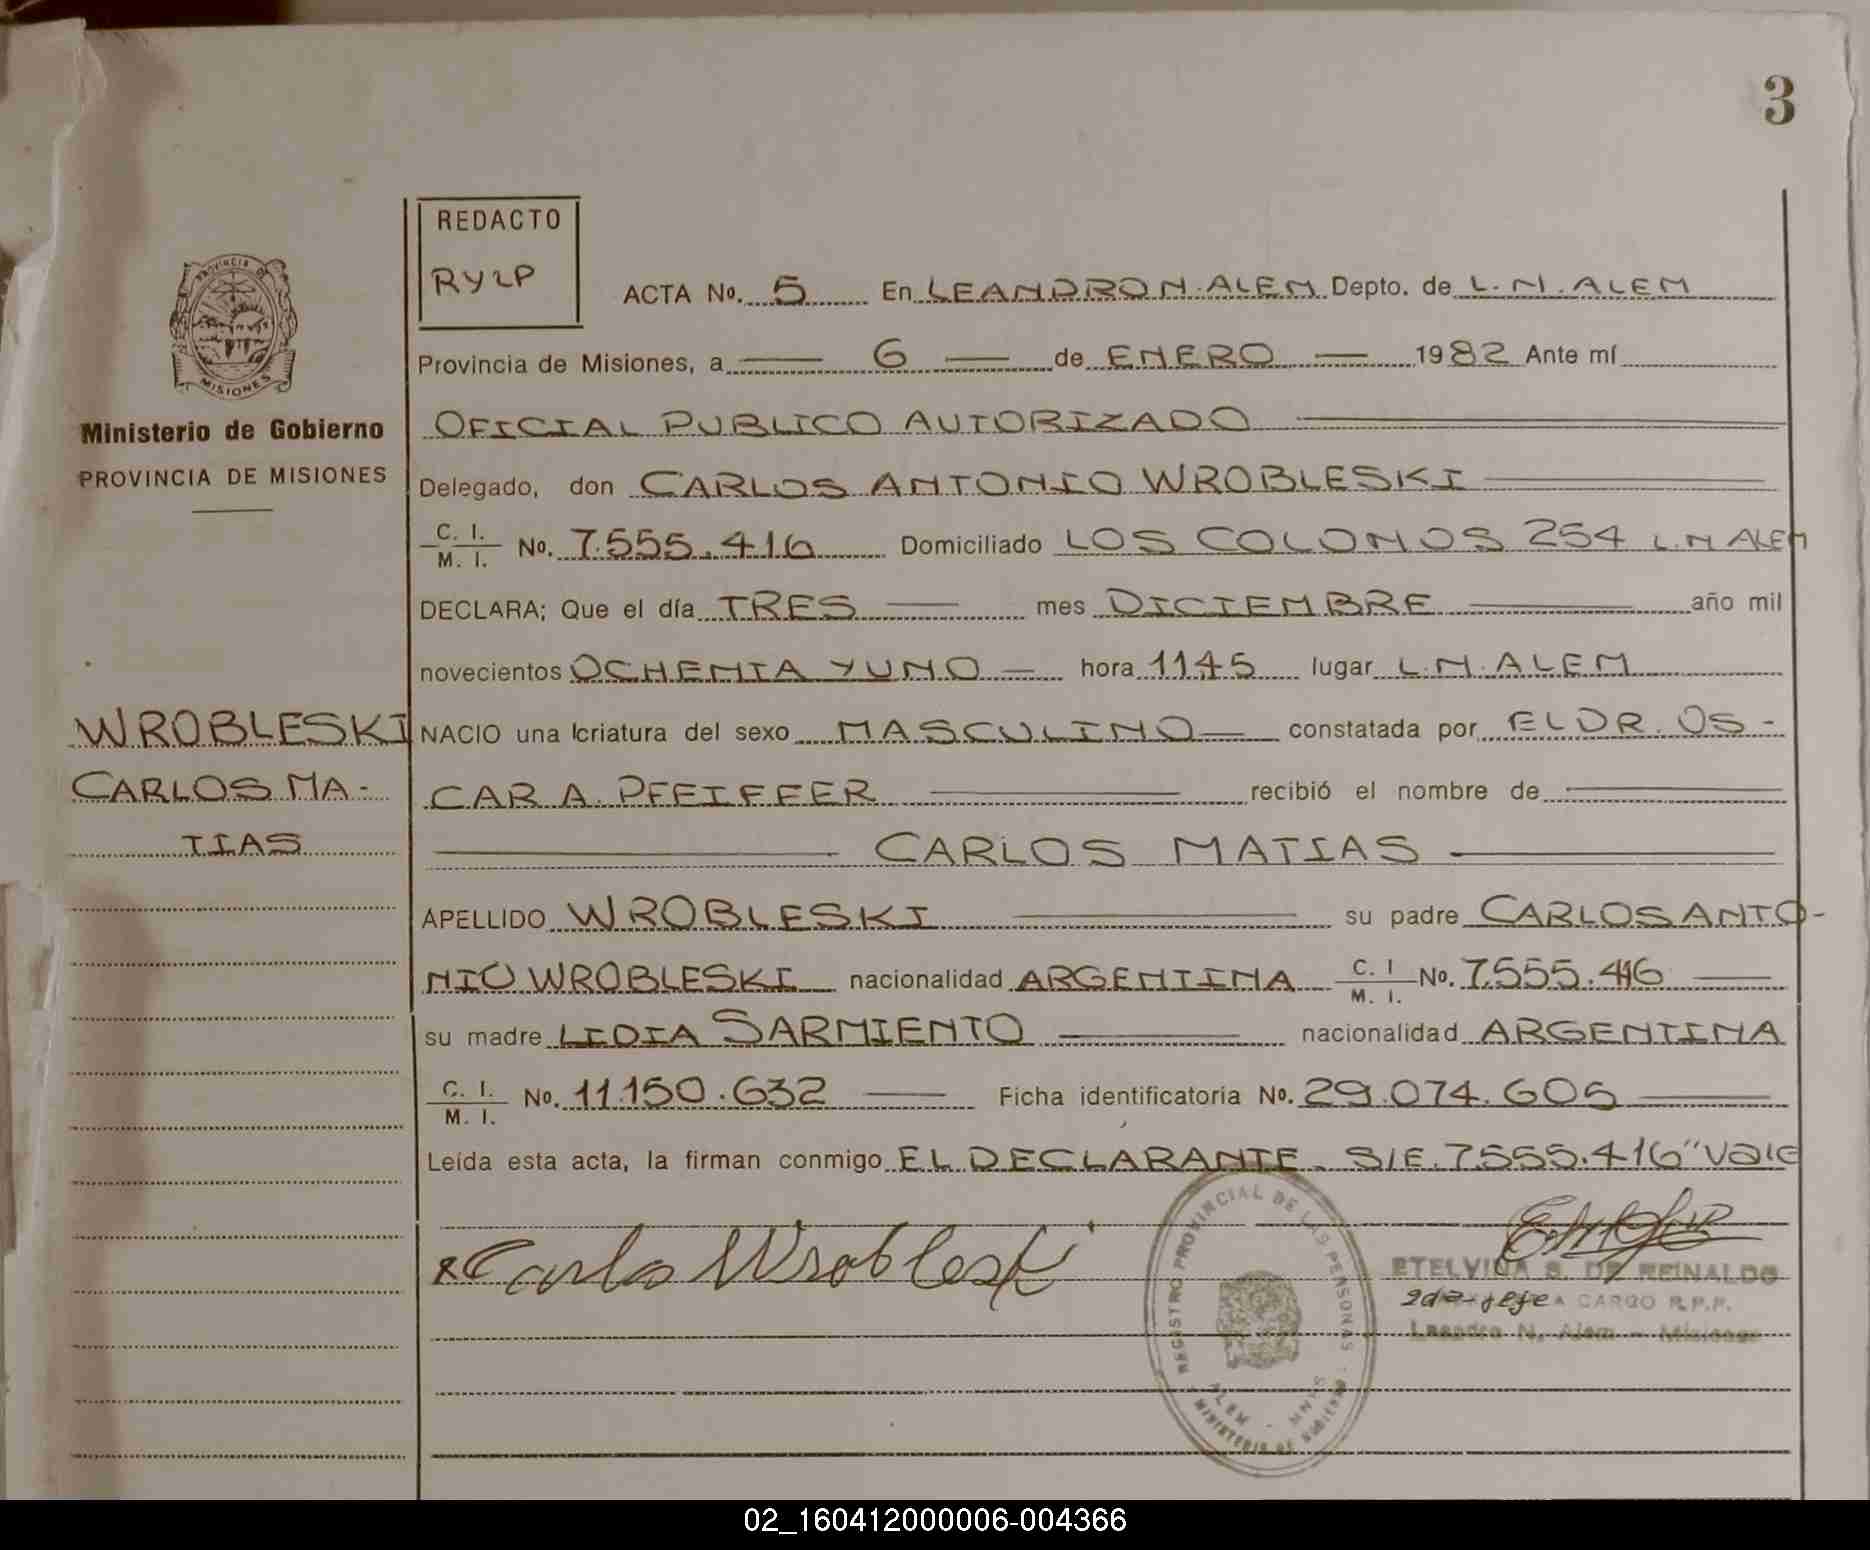 3
REDACTO
RYLP
ACTA No. 5 En LEANDRO N. ALEM Depto. de L. N. ALEM
PROVINCIA DE
MISIONES
Provincia de Misiones, a 6 de ENERO 1982 Ante mí
Ministerio de Gobierno
OFICIAL PUBLICO AUTORIZADO
PROVINCIA DE MISIONES
Delegado, don CARLOS ANTONIO WROBLESKI
C. I.
M. I. No. 7.555.416 Domiciliado LOS COLONOS 254 L.N ALEM
DECLARA; Que el día TRES mes DICIEMBRE año mil
novecientos OCHENTA Y UNO hora 11,45 lugar L.N. ALEM
WROBLESKI
CARLOS MA-
TIAS
NACIO una criatura del sexo MASCULINO constatada por EL DR. OS-
CAR A. PFEIFFER recibió el nombre de
CARLOS MATIAS
APELLIDO WROBLESKI su padre CARLOS ANTO-
NIO WROBLESKI nacionalidad ARGENTINA C. I
M. I. No. 7.555.416
su madre LIDIA SARMIENTO nacionalidad ARGENTINA
C. I.
M. I. No. 11.150.632 Ficha identificatoria No. 29.074.605
Leída esta acta, la firman conmigo EL DECLARANTE. S/E. 7.555.416" Vale
Carlos Wrobleski
REGISTRO PROVINCIAL DE LAS PERSONAS
ALEM - MNES
MINISTERIO DE GOBIERNO
ETELVINA S. DE REINALDO
2da jefe A CARGO R.P.P.
Leandro N. Alem - Misiones
02_160412000006-004366